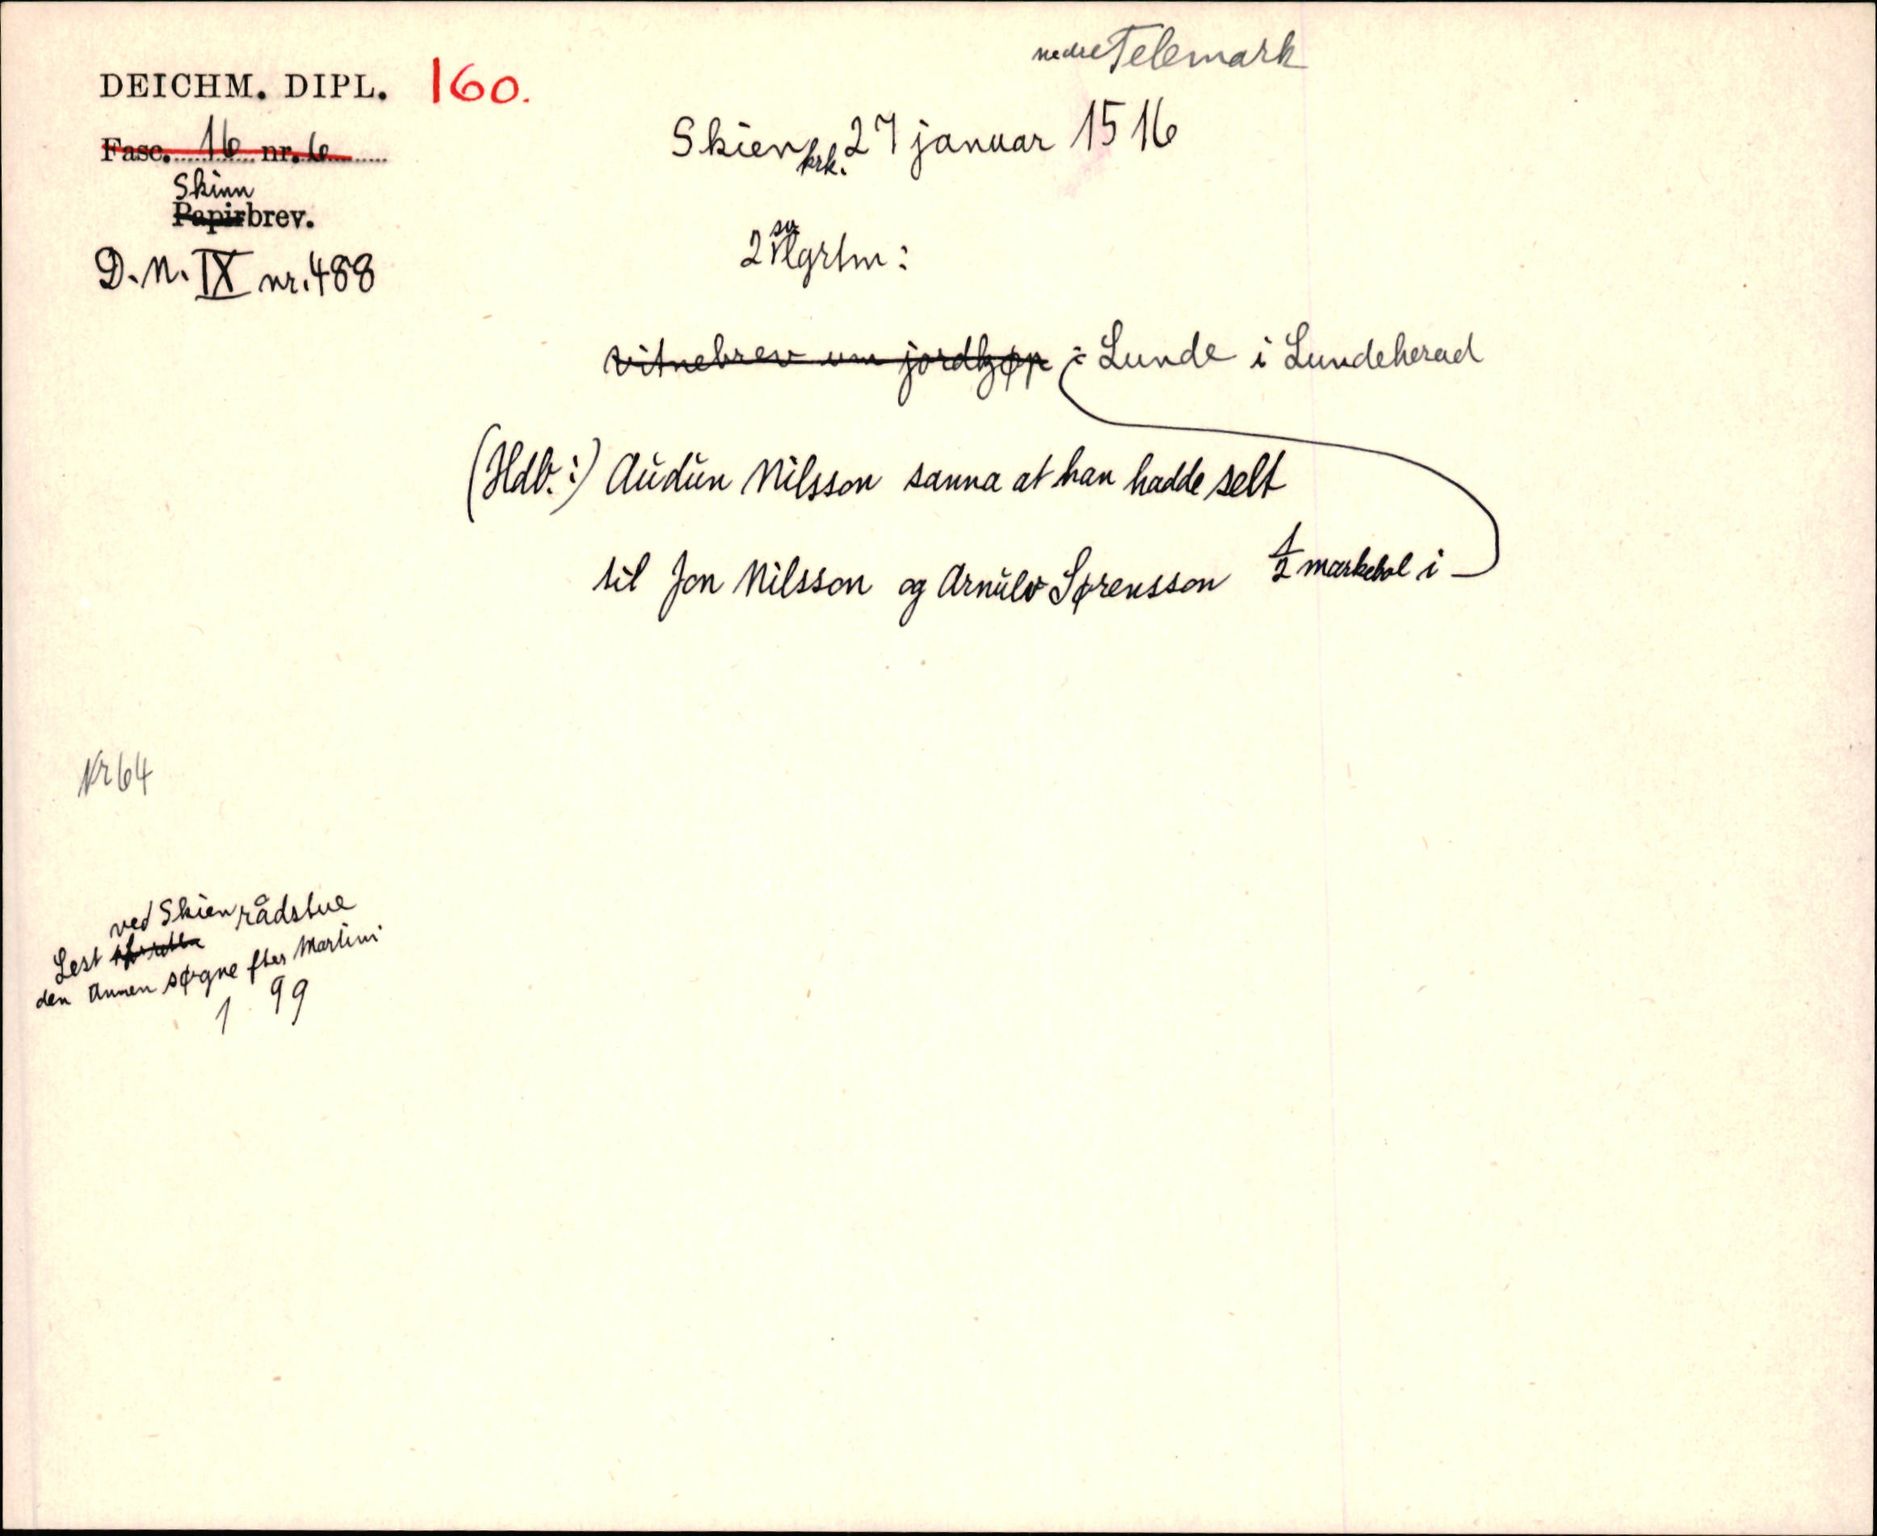 nedre Telemark
DEICHM. DIPL. 160.
Skien krk. 27 januar 1516
Fasc. 16 nr. 6
Skinn
Papirbrev.
D.N. IX nr. 488
2
vitnebrev um jordkjøp i Lunde i Lundeherad
(Hdb.:) Audun Nilsson sanna at han hadde selt
til Jon Nilsson og Arnulv Sørensson 1/2 markebol i
Nr 64
ved Skien rådstue
Lest
den Annen søgne fter Martini
1 99